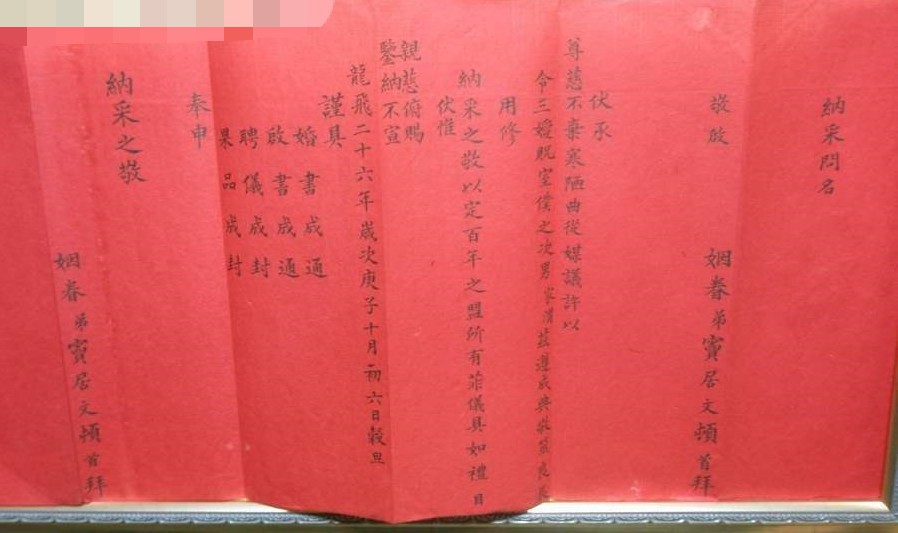 納采問名
敬啟
姻眷弟竇居文頓首拜
伏承
尊慈不棄寒陋曲從媒議許以
令三嬡貺室僕之次男家渭茲遵戎典敬筮良辰
用修
納采之敬以定百年之盟所有菲儀具如禮目
伏惟
親慈俯賜
鑒納不宣
龍飛二十六年歲次庚子十月初六日穀旦
謹具
婚書成通
啟書成通
聘儀成封
果品成封
奉申
納采之敬
姻眷弟竇居文頓首拜